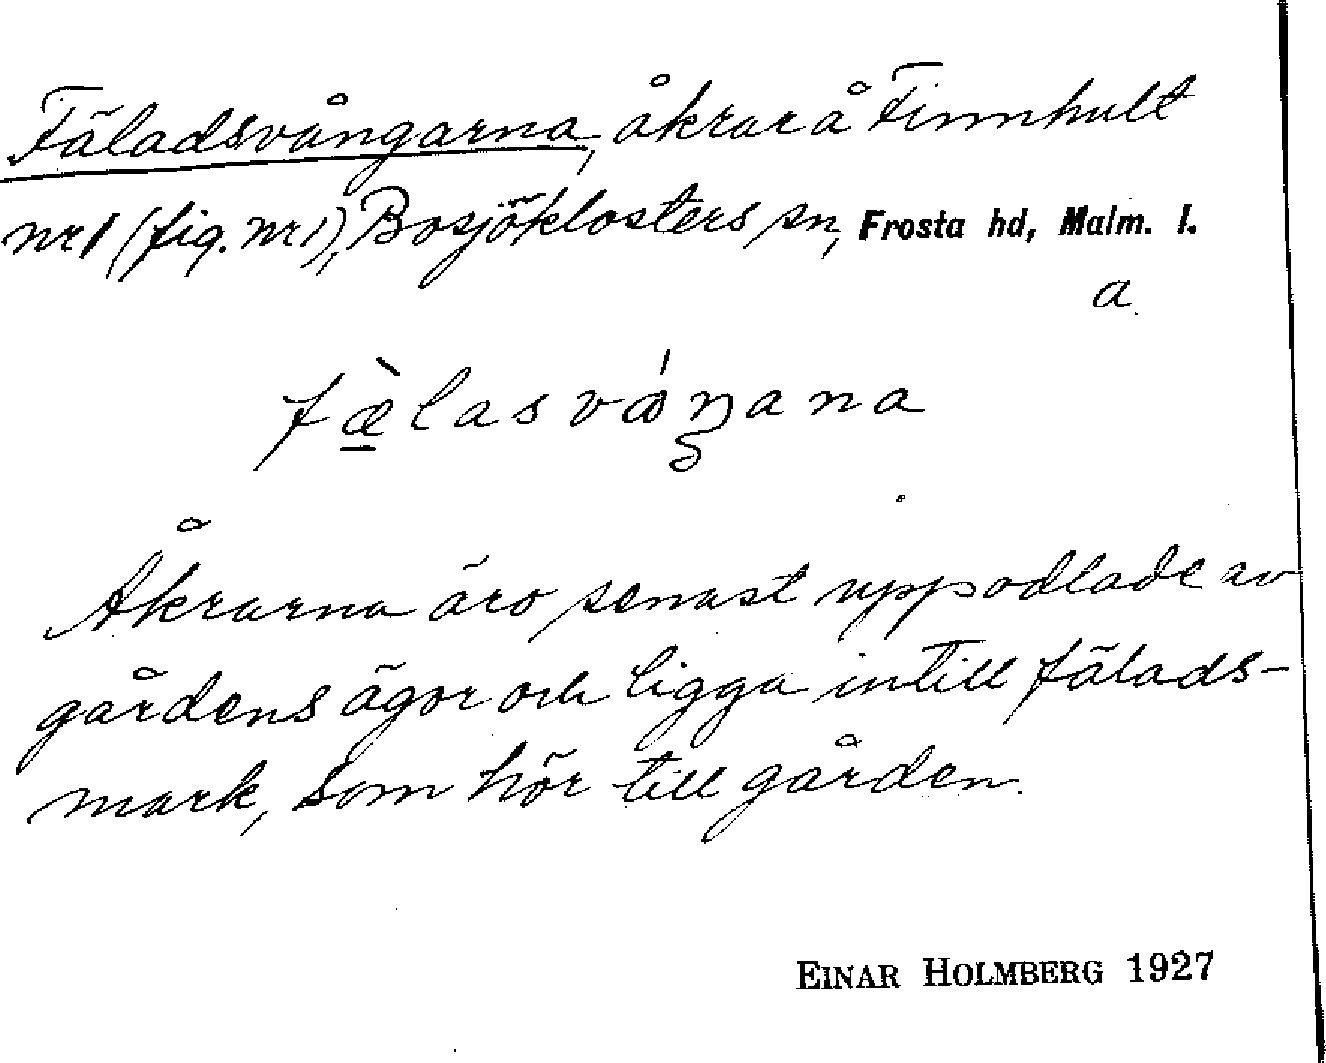 Fäladsvångarna, åkrar å Finnhult
nr 1 (fig. nr 1), Bosjöklosters sn, Frosta hd, Malm. l.
a
fæ̀lasvåŋana
Åkrarna äro senast uppodlade av
gårdens ägor och ligga intill fälads-
mark, som hör till gården.
EINAR HOLMBERG 1927